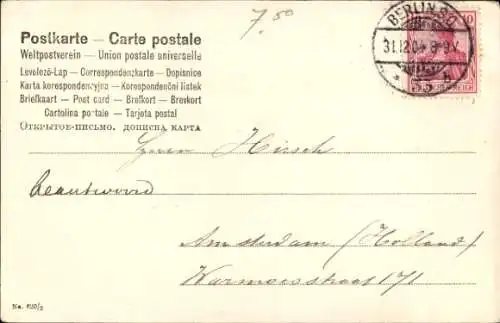 7.50
Postkarte — Carte postale
Weltpostverein — Union postale universelle
Levelező-Lap — Correspondenzkarte — Dopisnice
Karta korespondencyjna — Korespondenční lístek
Briefkaart — Post card — Brefkort — Brevkort
Cartolina postale — Tarjeta postal
Открытое-письмо. дописна карта
BERLIN
31.12.04 8-9V
10
Herrn Hirsch
Beantwoord
Amsterdam (Holland)
Warmoesstraat 171